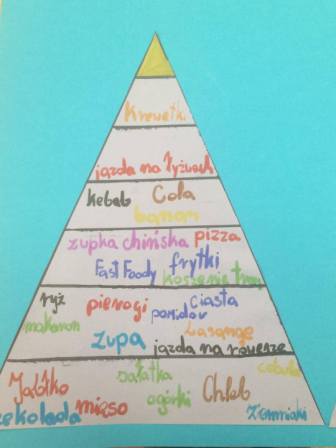 Krewetki
jazda na łyżwach
kebab Cola
banan
zupka chińska pizza
Fast Foody frytki
koszenie trawy
ryż pierogi ciasta
makaron pomidor
zupa Lasange
jazda na rowerze
Jabłko sałatka cebula
czekolada mięso ogórki Chleb
Ziemniaki